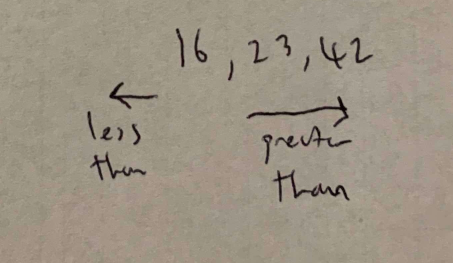 16, 23, 42
less
than
greater
than